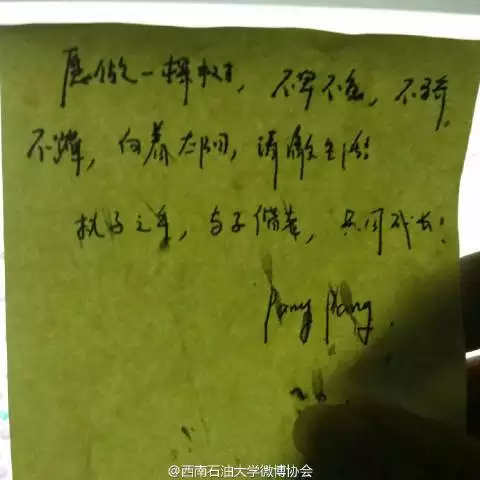 愿做一棵树，不卑不亢，不骄
不躁，向着太阳，
执子之手，与子偕老，共同成长！
@西南石油大学微博协会